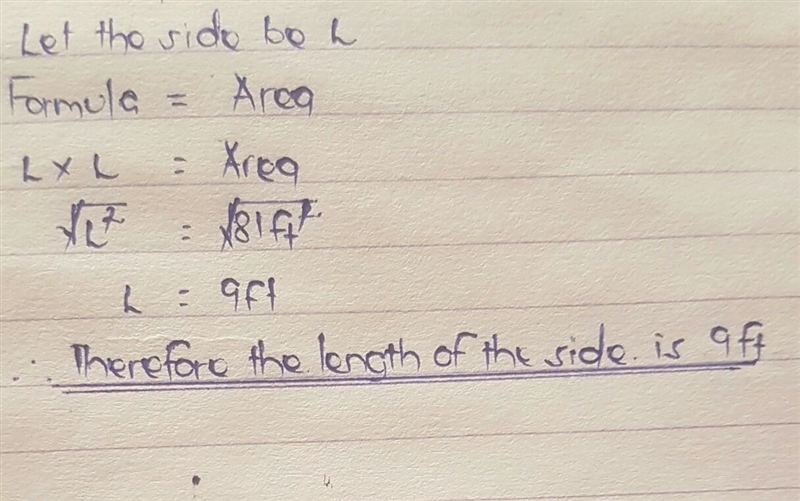 Let the side be L
Formula = Area
L × L = Area
√L² = √81ft²
L = 9ft
∴ Therefore the length of the side. is 9ft